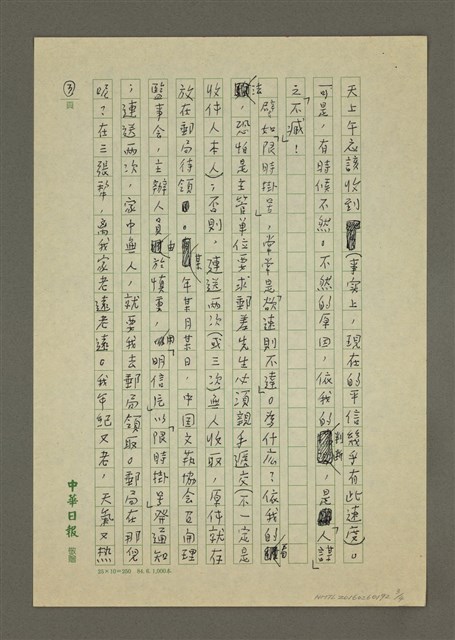 天上午應該收到(事實上，現在的平信幾乎有此速度)。
可是，有時候不然。不然的原因，依我的判斷，是「人謀
之不臧」！
譬如「限時掛號」，常常是「欲速則不達」。為什麼？依我的看
法，恐怕是主管單位要求郵差先生必須親手遞交(不一定是
收件人本人)；否則，連送兩次(或三次)無人收取，原件就存
放在郵局待領。某年某月某日，中國文藝協會召開理
監事會，主辦人員由於慎重，用「明信片以限時掛號發通知
；連送兩次，家中無人，就要我去郵局領取。郵局在那兒
呢？在三張犂，离我家老遠老遠。我年紀又老，天氣又熱
③
中華日報
25×10＝250 84.6.1,000本